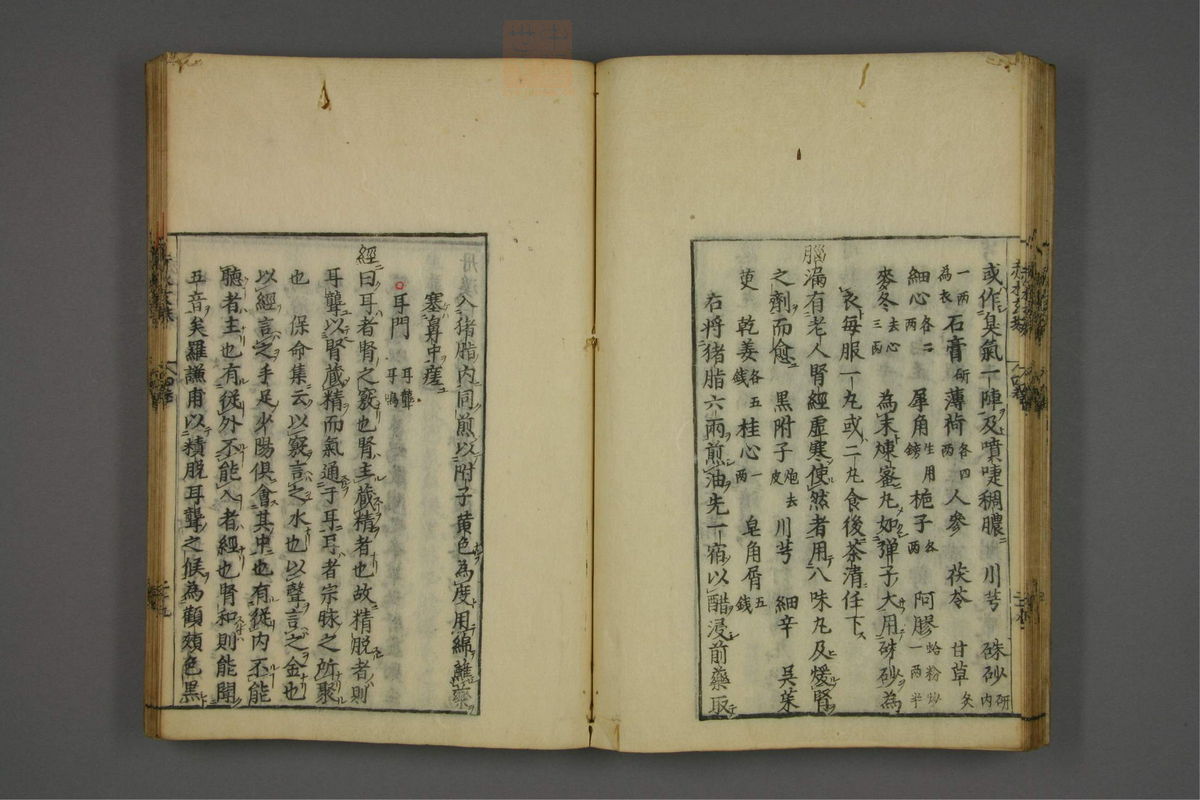 或作臭氣一陣及噴啑稠膿 川芎 硃砂研内
一兩為衣 石膏研 薄荷各四兩 人參 茯苓 甘草炙
細心各二兩 犀角生用鎊 梔子各兩 阿膠蛤粉炒一兩半
麥冬去心三兩 為末煉蜜丸如彈子大用硃砂為
衣每服一丸或二丸食後茶清任下
腦漏有老人腎經虛寒使然者用八味丸及煖腎
之劑而愈 黒附子炮去皮 川芎 細辛 吳茱
萸 乾姜各五錢 桂心一兩 皂角屑五錢
右將猪脂六兩煎油先一宿以醋浸前藥取
入猪脂内同煎以附子黄色為度用綿蘸藥
塞鼻中瘥
耳門 耳聾耳鳴
經曰耳者腎之竅也腎主藏精者也故精脱者則
耳聾以腎藏精而氣通于耳耳者宗脉之所聚
也 保命集云以竅言之水也以聲言之金也
以經言之手足少陽俱會其中也有従内不能
聽者主也有従外不能入者經也腎和則能聞
五音矣羅謙甫以精脱耳聾之候為顴頰色黒